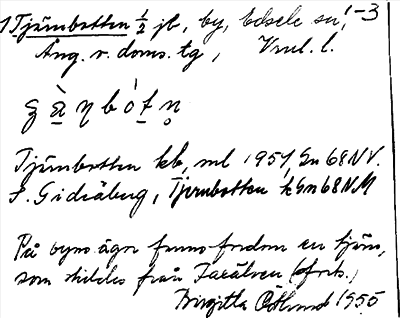 1 Tjärnbotten ½ jb, by, Edsele sn, 1-3
Ång. v. doms. tg, Vnrl. l.
Tjärnbotten kb, ml 1957, Gn 68 NV.
F. Gidsåberg, Tjernbotten k Gn 68 NM
På byns ägor fanns fordom en tjärn,
som skildes från Faxälven (förb.)
Birgitta Östlund 1950